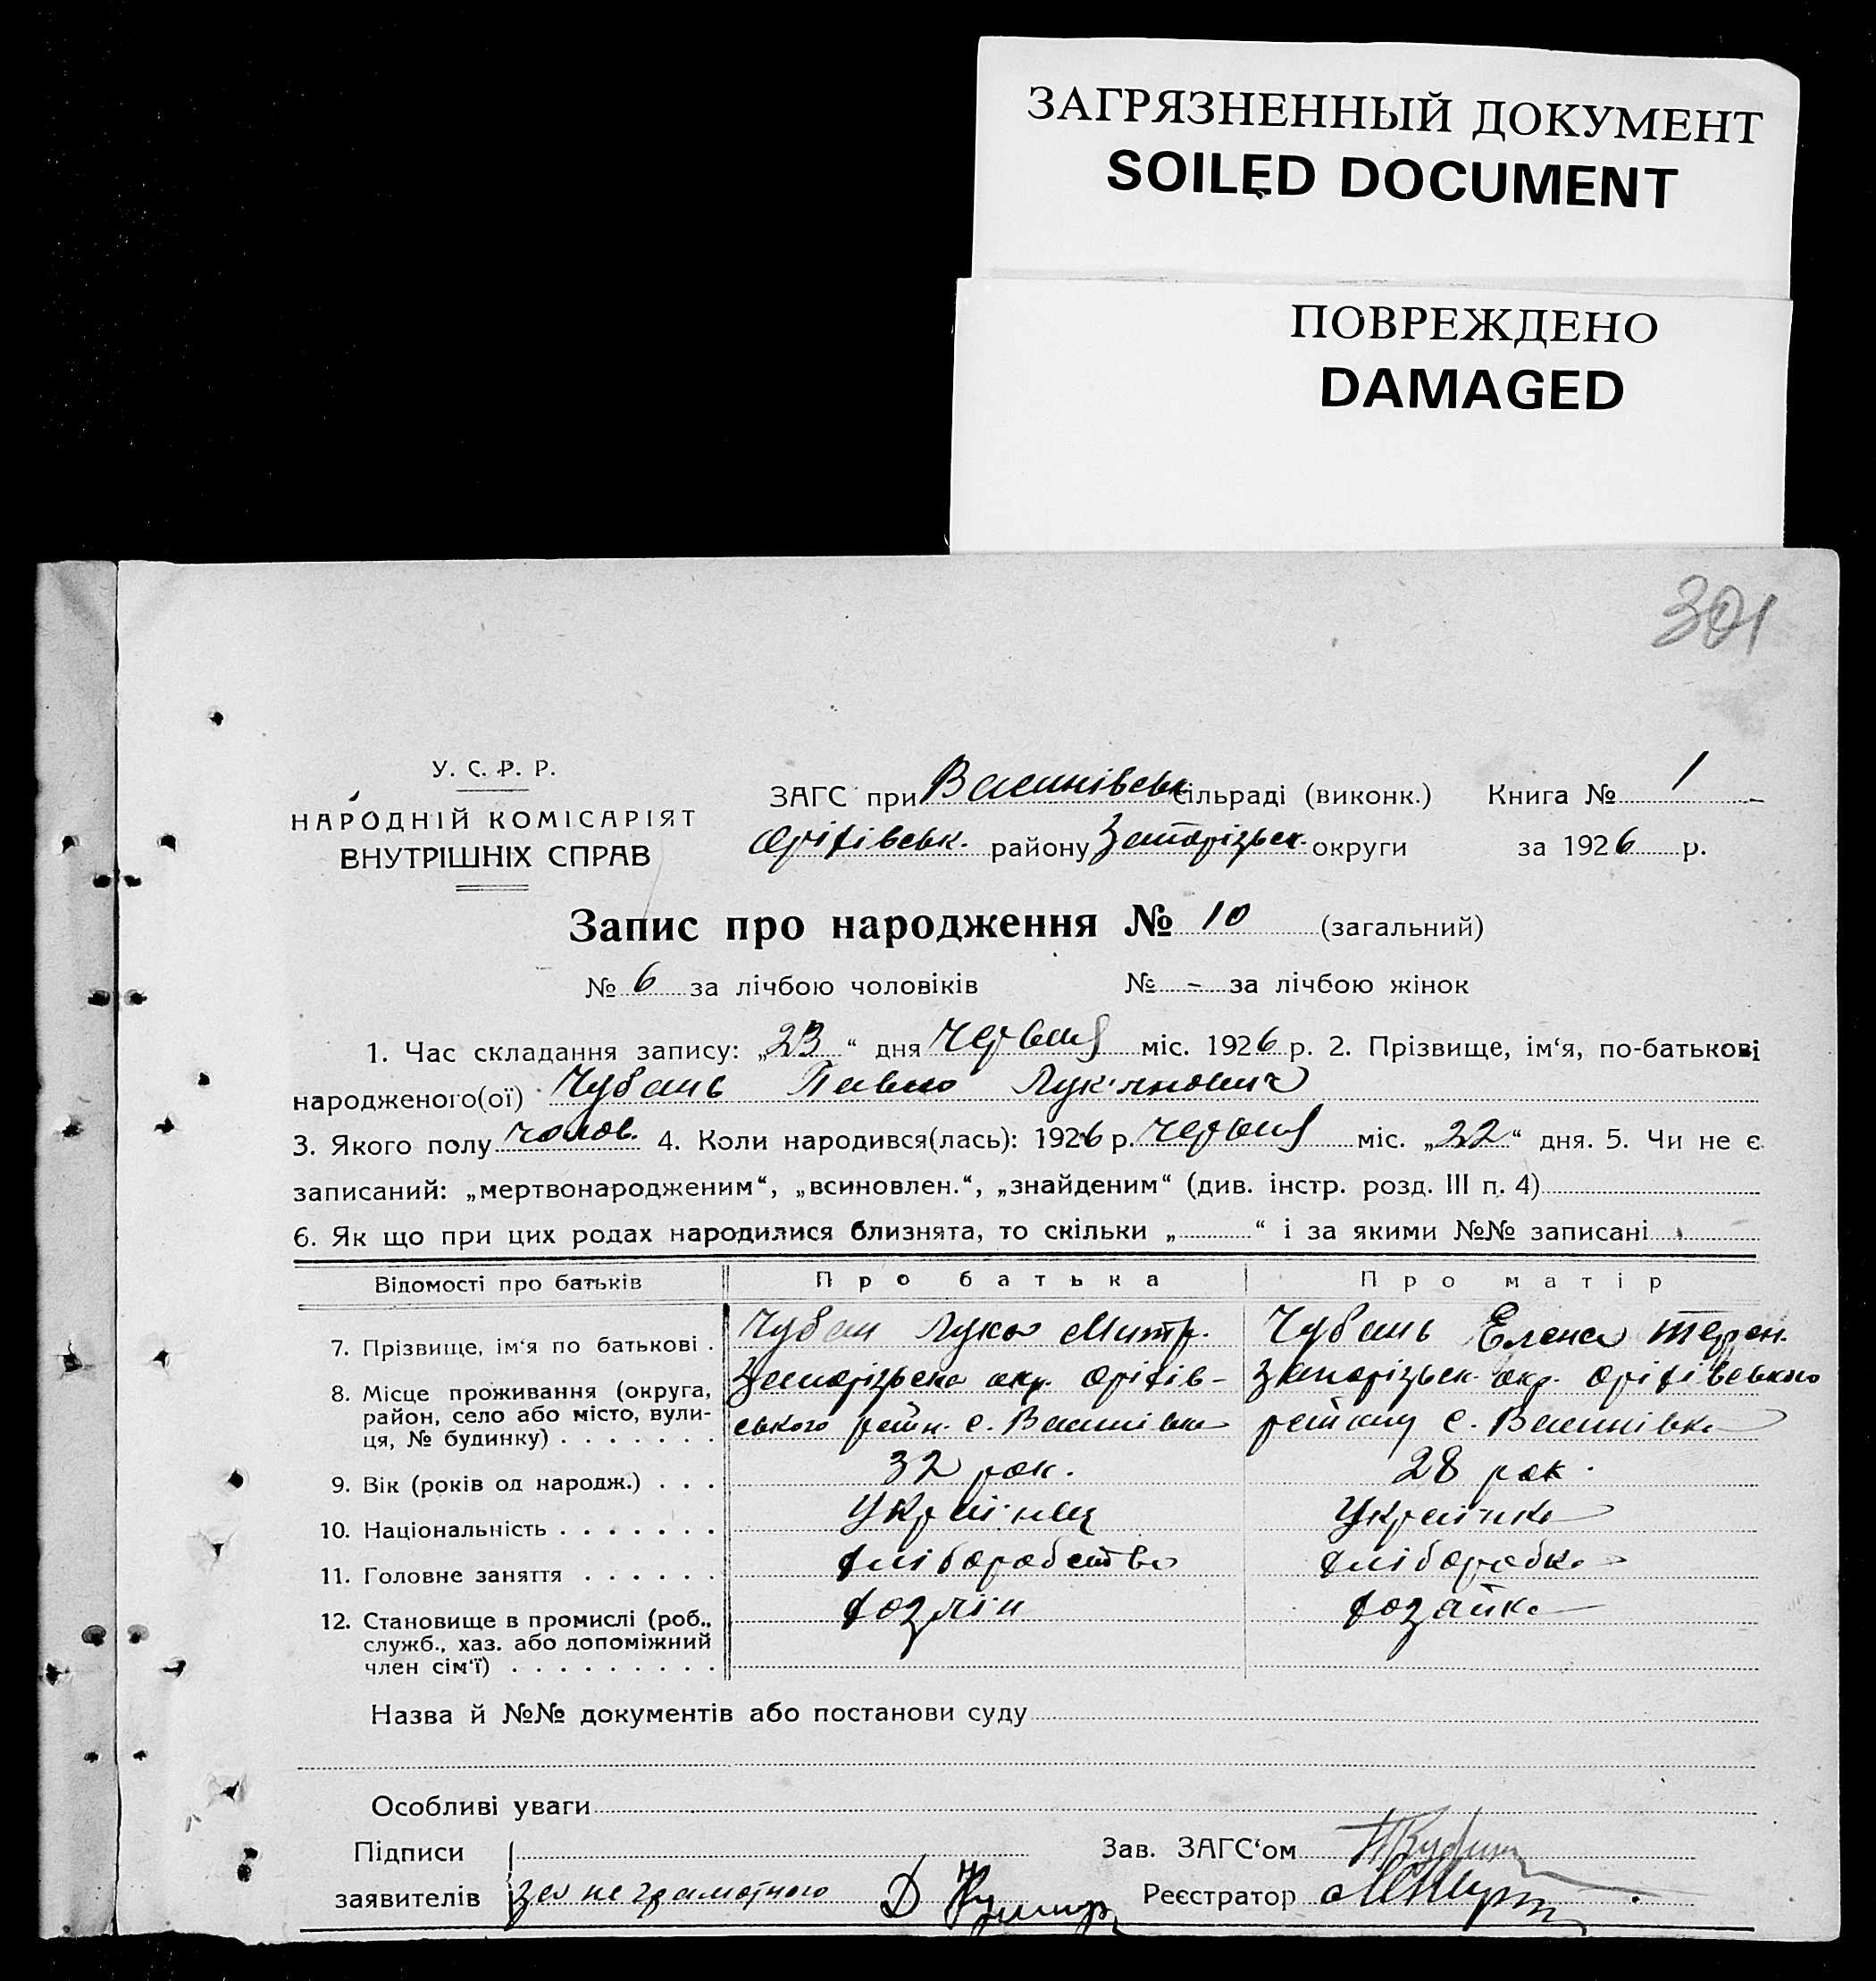 ЗАГРЯЗНЕННЫЙ ДОКУМЕНТ
SOILED DOCUMENT
ПОВРЕЖДЕНО
DAMAGED
301
У. С. Р. Р.
НАРОДНІЙ КОМІСАРІЯТ
ВНУТРІШНІХ СПРАВ
ЗАГС при сільраді (виконк.) Книга № 1
Оріхівськ. району Запорізьк. округи за 1926 р.
Запис про народження № 10 (загальний)
№ 6 за лічбою чоловіків № - за лічбою жінок
1. Час складання запису: „23“ дня Червня міс. 1926 р. 2. Прізвище, ім‘я, по-батькові
народженого(ої) Чубань Павло Лук'янович
3. Якого полу чолов. 4. Коли народився(лась): 1926 р. Червня міс. „22“ дня. 5. Чи не є
записаний: „мертвонародженим“, „всиновлен.“, „знайденим“ (див. інстр. розд. III п. 4)
6. Як що при цих родах народилися близнята, то скільки „ “ і за якими №№ записані
Відомості про батьків Про батька Про матір
7. Прізвище, ім‘я по батькові . Чубан Лука Митр. Чубань Елена Терен.
8. Місце проживання (округа, район, село або місто, вулиця, № будинку) . . . . . . . Запорізька окр. Оріхів- Запорізьк. окр. Оріхівського
ського район. с. району с.
9. Вік (років од народж.) . . . 32 рок. 28 рок.
10. Національність . . . . . . . Українец Українка
11. Головне заняття . . . . . . хліборобство хлібаробка
12. Становище в промислі (роб., хозяїн хозайка
служб., хаз. або допоміжний
член сім‘ї) . . . . . . . . .
Назва й №№ документів або постанови суду
Особливі уваги
Підписи Зав. ЗАГС‘ом
заявителів за не грамотного Реєстратор